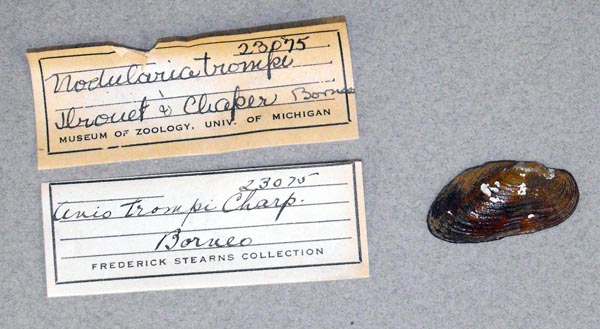 23075
Nodularia trompi
Drouet & Chaper Borneo
MUSEUM OF ZOOLOGY, UNIV. OF MICHIGAN
23075
Unio trompi Charp.
Borneo
FREDERICK STEARNS COLLECTION